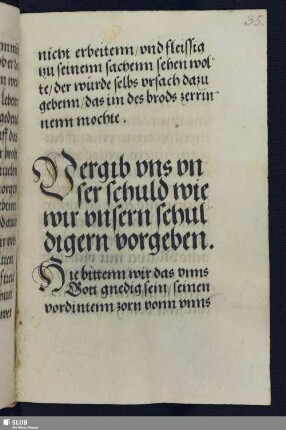 35.
nicht erbeitenn/vnd fleissig
tzu seinenn sachenn sehen wol-
te/der würde selbs vrsach dazu
gebenn/das im des brods zerrin-
nenn mochte.
Vergib vns vn
ser schuld wie
wir vnsern schul
digern vorgeben.
Hie bittenn wir das vnns
Gott gnedig sein/seinen
vordintenn zorn vonn vnns
SLUB